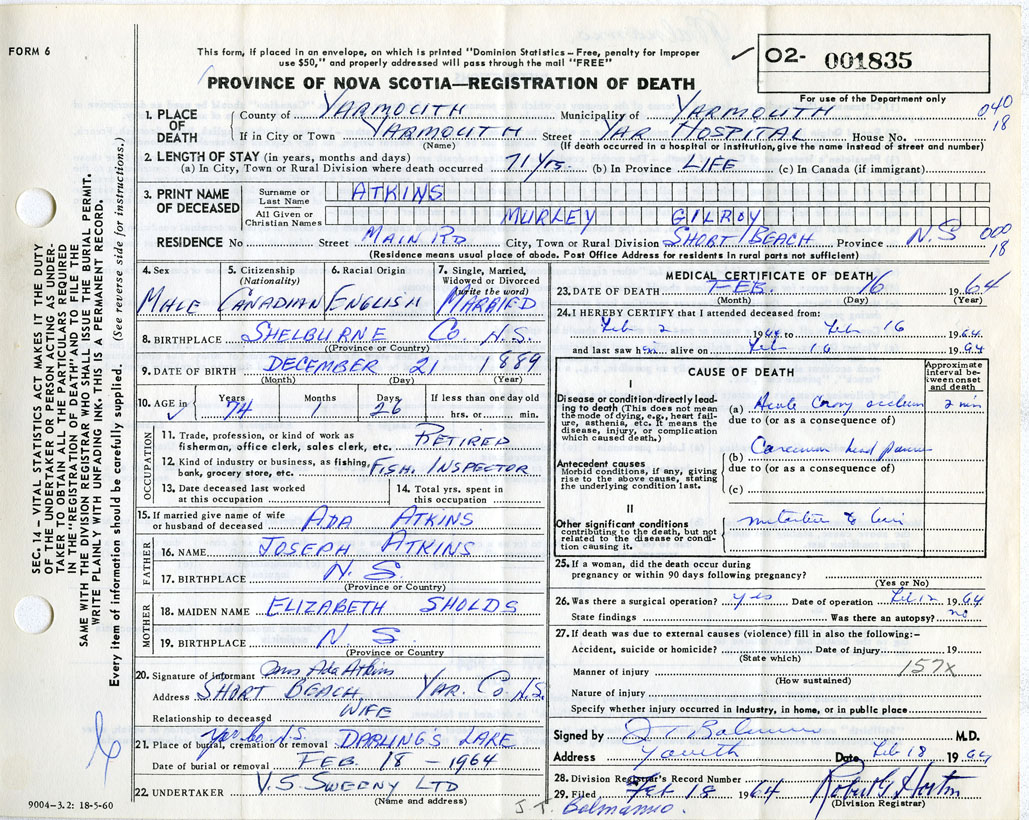 FORM 6
This form, if placed in an envelope, on which is printed "Dominion Statistics – Free, penalty for improper
use $50," and properly addressed will pass through the mail "FREE"
PROVINCE OF NOVA SCOTIA—REGISTRATION OF DEATH
02- 001835
For use of the Department only
1. PLACE OF DEATH
County of YARMOUTH Municipality of YARMOUTH 040
If in City or Town YARMOUTH Street YAR HOSPITAL House No. 18
(Name) (If death occurred in a hospital or institution, give the name instead of street and number)
2. LENGTH OF STAY (in years, months and days)
(a) In City, Town or Rural Division where death occurred 71 yrs. (b) In Province LIFE (c) In Canada (if immigrant)
3. PRINT NAME OF DECEASED
Surname or Last Name ATKINS
All Given or Christian Names MURLEY GILROY
RESIDENCE No Street MAIN RD City, Town or Rural Division SHORT BEACH Province N.S 000 18
(Residence means usual place of abode. Post Office Address for residents in rural parts not sufficient)
4. Sex MALE
5. Citizenship (Nationality) CANADIAN
6. Racial Origin ENGLISH
7. Single, Married, Widowed or Divorced (write the word) MARRIED
8. BIRTHPLACE SHELBURNE CO. N.S.
(Province or Country)
9. DATE OF BIRTH DECEMBER 21 1889
(Month) (Day) (Year)
10. AGE in Years 74 Months 1 Days 26 If less than one day old hrs. or min.
OCCUPATION
11. Trade, profession, or kind of work as fisherman, office clerk, sales clerk, etc. RETIRED
12. Kind of industry or business, as fishing, bank, grocery store, etc. FISH. INSPECTOR
13. Date deceased last worked at this occupation
14. Total yrs. spent in this occupation
15. If married give name of wife or husband of deceased ADA ATKINS
FATHER
16. NAME JOSEPH ATKINS
17. BIRTHPLACE N.S.
(Province or Country)
MOTHER
18. MAIDEN NAME ELIZABETH SHOLDS
19. BIRTHPLACE N.S.
(Province or Country)
20. Signature of informant Mrs Ada Atkins
Address SHORT BEACH YAR. CO. N.S.
Relationship to deceased WIFE
21. Place of burial, cremation or removal Yar Co. N.S. DARLING'S LAKE
Date of burial or removal FEB. 18 - 1964
22. UNDERTAKER V.S. SWEENY LTD
(Name and address)
9004-3.2: 18-5-60
MEDICAL CERTIFICATE OF DEATH
23. DATE OF DEATH FEB. 16 1964
(Month) (Day) (Year)
24. I HEREBY CERTIFY that I attended deceased from:
Feb 2 1964 to Feb 16 1964
and last saw him alive on Feb 16 1964
CAUSE OF DEATH
Approximate interval between onset and death
I
Disease or condition directly leading to death (This does not mean the mode of dying, e.g., heart failure, asthenia, etc. It means the disease, injury, or complication which caused death.)
(a) Acute 2 min
due to (or as a consequence of)
Antecedent causes
Morbid conditions, if any, giving rise to the above cause, stating the underlying condition last.
(b) head
due to (or as a consequence of)
(c)
II
Other significant conditions
contributing to the death, but not related to the disease or condition causing it.
25. If a woman, did the death occur during
pregnancy or within 90 days following pregnancy?
(Yes or No)
26. Was there a surgical operation? yes Date of operation Feb 12 1964
State findings Was there an autopsy? no
27. If death was due to external causes (violence) fill in also the following:–
Accident, suicide or homicide? Date of injury 19
(State which)
Manner of injury 157X
(How sustained)
Nature of injury
Specify whether injury occurred in industry, in home, or in public place
Signed by M.D.
Address Date Feb 18 1964
28. Division Registrar's Record Number
29. Filed Feb 18 1964
(Division Registrar)
SEC. 14 – VITAL STATISTICS ACT MAKES IT THE DUTY
OF THE UNDERTAKER OR PERSON ACTING AS UNDER-
TAKER TO OBTAIN ALL THE PARTICULARS REQUIRED
IN THE "REGISTRATION OF DEATH" AND TO FILE THE
SAME WITH THE DIVISION REGISTRAR WHO SHALL ISSUE THE BURIAL PERMIT.
WRITE PLAINLY WITH UNFADING INK. THIS IS A PERMANENT RECORD.
Every item of information should be carefully supplied. (See reverse side for instructions.)